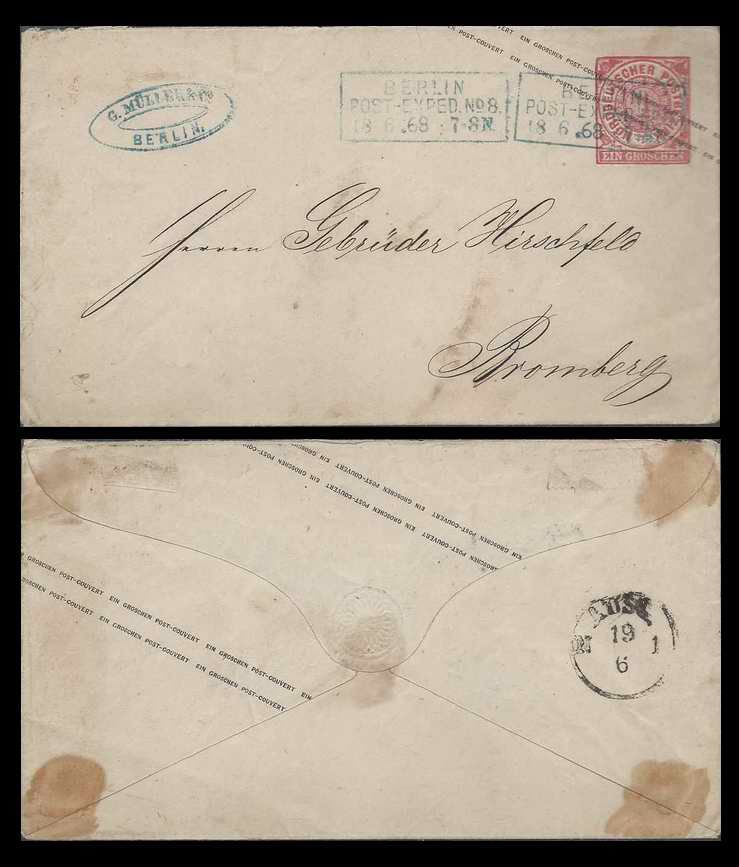 EIN GROSCHEN POST-COUVERT EIN GROSCHEN POST-COUVERT
G. MÜLLER & Co
BERLIN.
BERLIN
POST-EXPED. No 8.
18 6 .68 7-8N.
BE
POST-EX
18 6 .68
NORDDEUTSCHER POSTBEZIRK
EIN GROSCHEN
Herren Gebrüder Hirschfeld
Bromberg
EIN GROSCHEN POST-COUVERT EIN GROSCHEN POST-COUVERT EIN GROSCHEN
EIN GROSCHEN POST-COUVERT EIN GROSCHEN POST-COUVERT
GROSCHEN POST-COUVERT EIN GROSCHEN POST-COUVERT EIN GROSCHEN POST-COUVERT EIN
GROSCHEN POST-COUVERT EIN GROSCHEN POST-COUVERT EIN GROSCHEN POST-COUVERT
AUSG
19
N 1
6